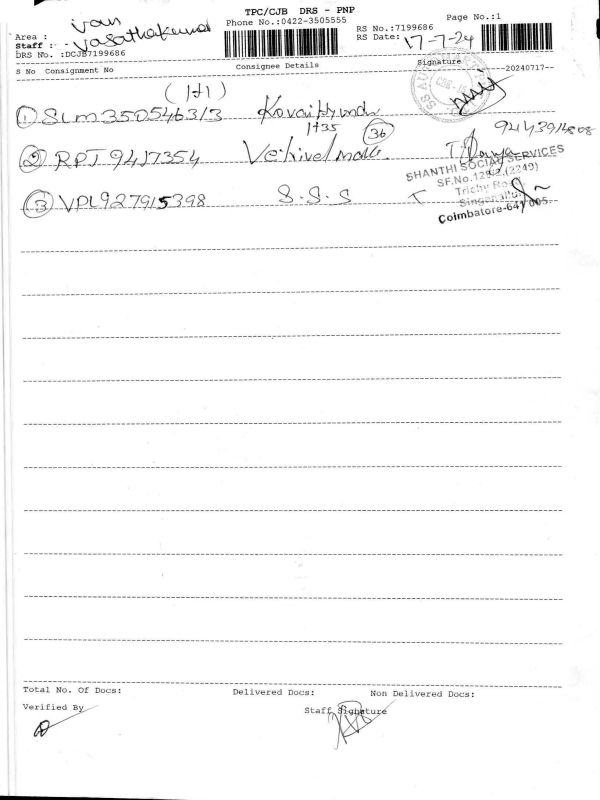 TPC/CJB DRS - PNP
Phone No.:0422-3505555
Page No.:1
Area : van
Staff : - Vasathakumar
DRS No. :DCJB7199686
RS No.:7199686
RS Date: 17-7-24
S No Consignment No Consignee Details Signature ----20240717--
(1+1)
① SLM350546313 Kovai
1+35
② RPJ9417354 Vetrivel 36
9414391408
③ VPL927915398 S.S.S
SHANTHI SOCIAL SERVICES
Trichy Road
Singanallur
Coimbatore-641 005.
Total No. Of Docs: Delivered Docs: Non Delivered Docs:
Verified By Staff Signature